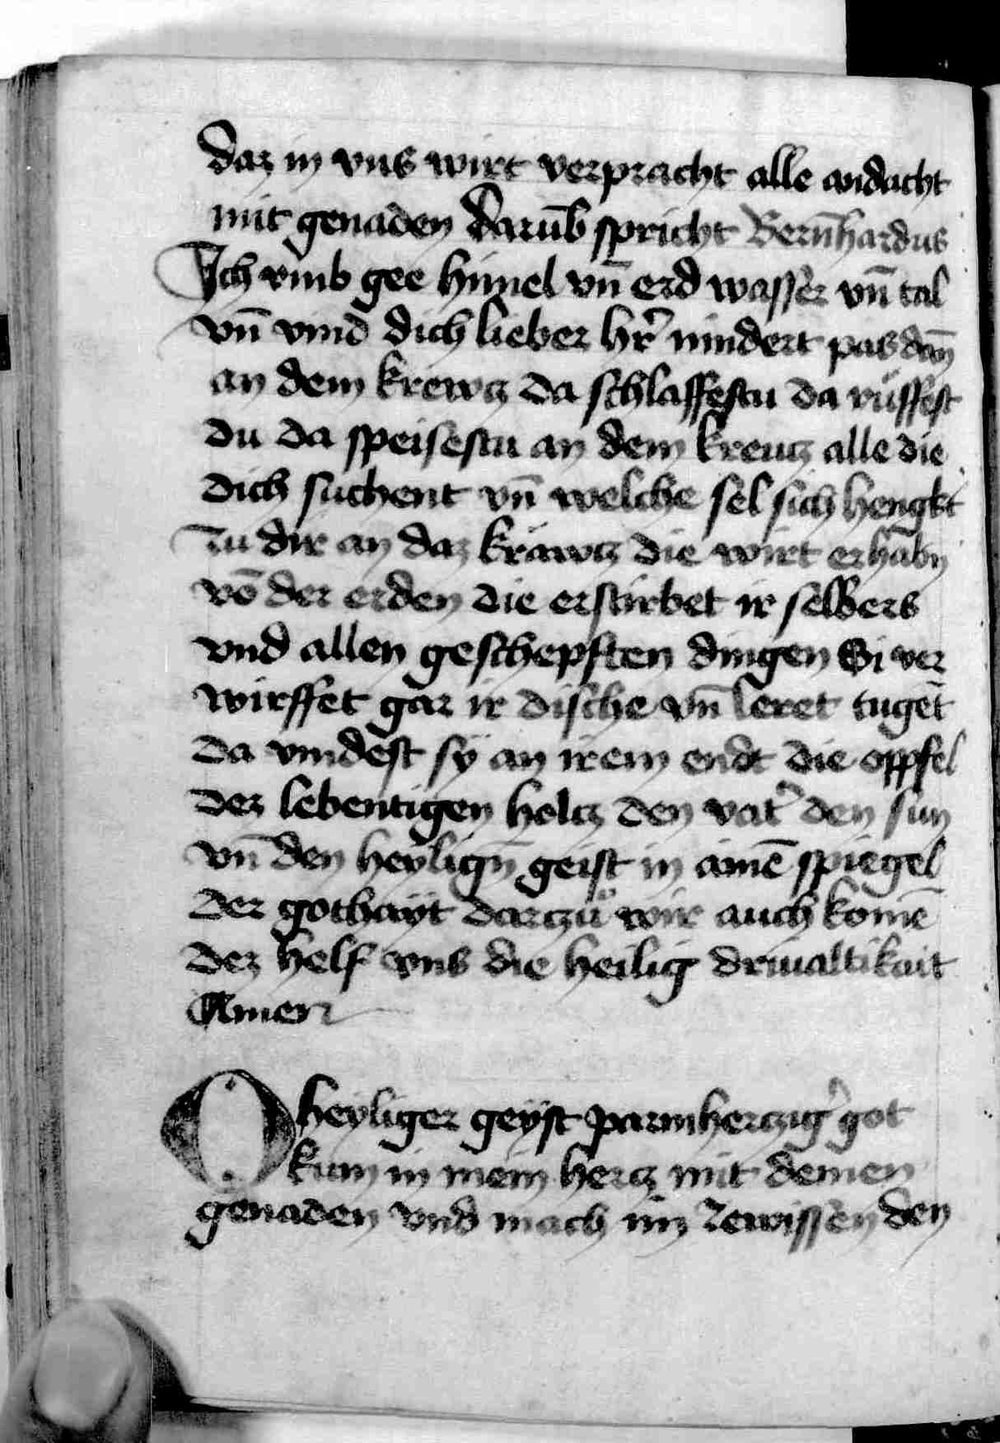 daz in vns wirt verpracht alle andacht
mit genaden Darūb spricht Bern̄hardus
Ich vmb gee himel vn̄ erd wasser vn̄ tal
vn̄ vind dich lieber hr̄ nindert pas dan̄
an dem krewcz da schlaffestu da rüffest
du da speisestu an dem kreucz alle die
dich suchent vn̄ welche sel sich hengkt
zu dir an daz kräwcz die wirt erhabn
vō der erden die erstirbet ir selbers
vnd allen geschepften dingen Si ver
wirffet gar ir dische vn̄ leret tugēt
da vindest sy an irem endt die oppfel
dez lebentigen holcz den vat̄ den sun
vn̄ den heylign̄ geist in ainē spiegel
der gothayt darczů wir auch komē
dez helf vns die heilig driualtikait
Amen
O heyliger geyst parmhercziḡ got
kum in mein hercz mit deinen
genaden vnd mach im zewissen den